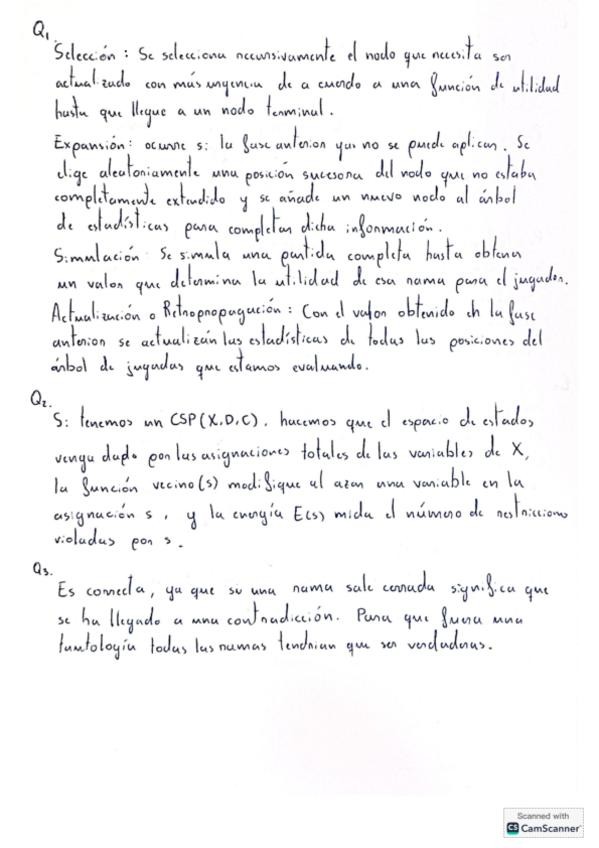 Q1
Selección: Se selecciona recursivamente el nodo que necesita ser
actualizado con más urgencia de acuerdo a una función de utilidad
hasta que llegue a un nodo terminal.
Expansión: ocurre si la fase anterior ya no se puede aplicar. Se
elige aleatoriamente una posición sucesora del nodo que no estaba
completamente extendido y se añade un nuevo nodo al árbol
de estadísticas para completar dicha información.
Simulación: Se simula una partida completa hasta obtener
un valor que determina la utilidad de esa rama para el jugador.
Actualización o Retropropagación: Con el valor obtenido en la fase
anterior se actualizán las estadísticas de todas las posiciones del
árbol de jugadas que estamos evaluando.
Q2.
Si tenemos un CSP (X,D,C), hacemos que el espacio de estados
venga dado por las asignaciones totales de las variables de X,
la función vecino(s) modifique al azar una variable en la
asignación s, y la energía E(s) mida el número de restricciones
violadas por s.
Q3.
Es correcta, ya que si una rama sale cerrada significa que
se ha llegado a una contradicción. Para que fuera una
tautología todas las ramas tendrian que ser verdaderas.
Scanned with
CS CamScanner